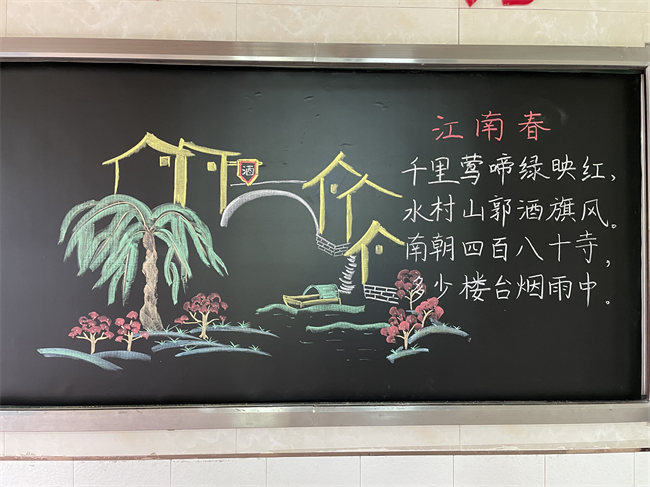 酒
江南春
千里莺啼绿映红，
水村山郭酒旗风。
南朝四百八十寺，
多少楼台烟雨中。